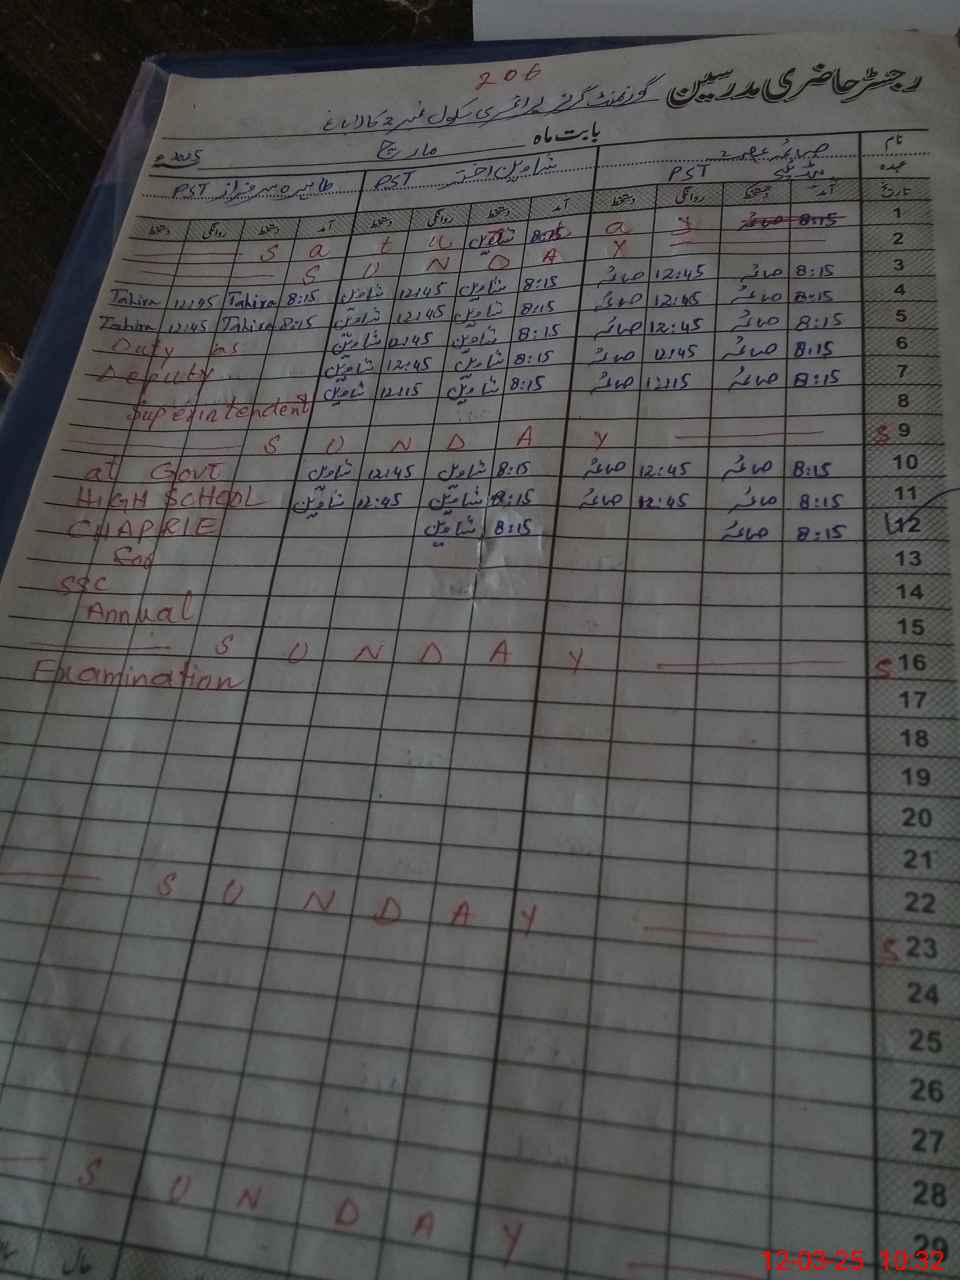 206
رجسٹر حاضری مدرسین گورنمنٹ گرلز پرائمری سکول نمبر 2 کالاباغ
بابت ماہ مارچ 2025ء
نام صائمہ شاہین اختر طاہرہ سرفراز
عہدہ PST PST PST
تاریخ آمد دستخط روانگی دستخط آمد دستخط روانگی دستخط آمد دستخط روانگی دستخط
1 8:15 صائمہ 8:15 شاہین S a t u a y
2 S U N D A Y
3 8:15 صائمہ 12:45 صائمہ 8:15 شاہین 12:45 شاہین 8:15 Tahira 12:45 Tahira
4 8:15 صائمہ 12:45 صائمہ 8:15 شاہین 12:45 شاہین 8:15 Tahira 12:45 Tahira
5 8:15 صائمہ 12:45 صائمہ 8:15 شاہین 12:45 شاہین Duty as
6 8:15 صائمہ 12:45 صائمہ 8:15 شاہین 12:45 شاہین Deputy
7 8:15 صائمہ 12:15 صائمہ 8:15 شاہین 12:15 شاہین Superintendent
8
S 9 S U N D A Y
10 8:15 صائمہ 12:45 صائمہ 8:15 شاہین 12:45 شاہین at Govt
11 8:15 صائمہ 12:45 صائمہ 8:15 شاہین 12:45 شاہین HIGH SCHOOL
12 8:15 صائمہ 8:15 شاہین CHAPRIE
13
14 SSC
15 Annual
S 16 S U N D A Y
17 Examination
18
19
20
21
22
S 23 S U N D A Y
24
25
26
27
28
29 S U N D A Y
12-03-25 10:32